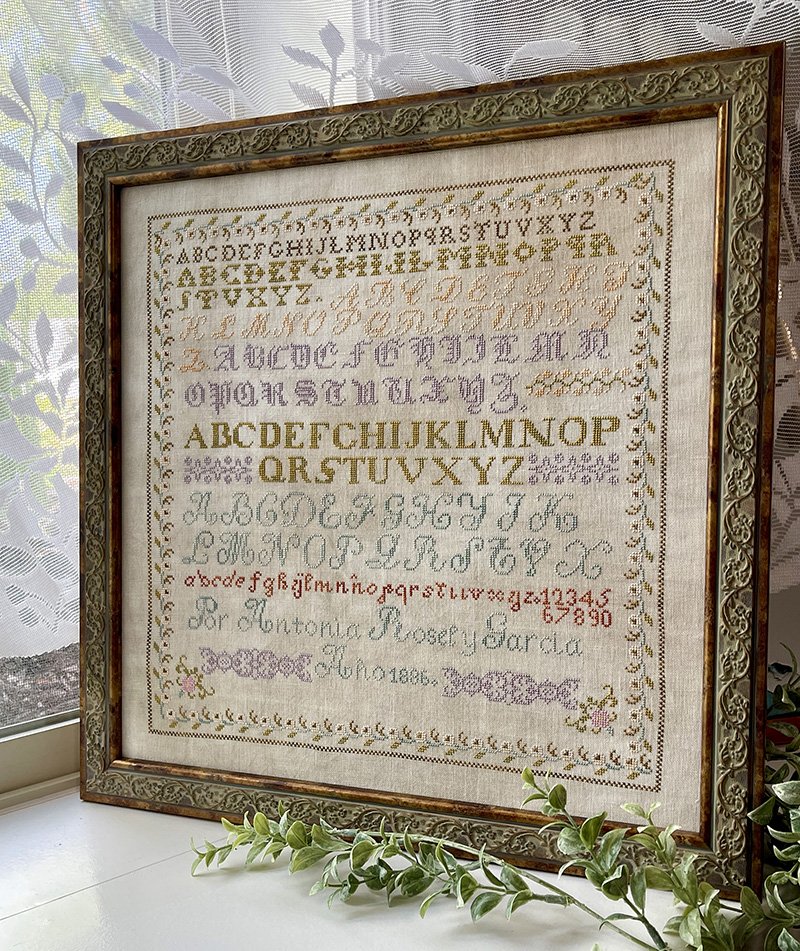 ABCDEFGHIJLMNOPQRSTUVXYZ
ABCDEFGHIJLMNOPQR
STVXYZ. ABCDEFGHIJ
KLMNOPQRSTUVXY
Z ABCDEFGHIJLMN
OPQRSTUUXYZ.
ABCDEFGHIJKLMNOP
QRSTUVXYZ
ABCDEFGHYJK
LMNOPQRSTVX
abcdefghijlmnñopqrstuvxyz12345
67890
Por Antonia Roset y Garcia
Año 1886.